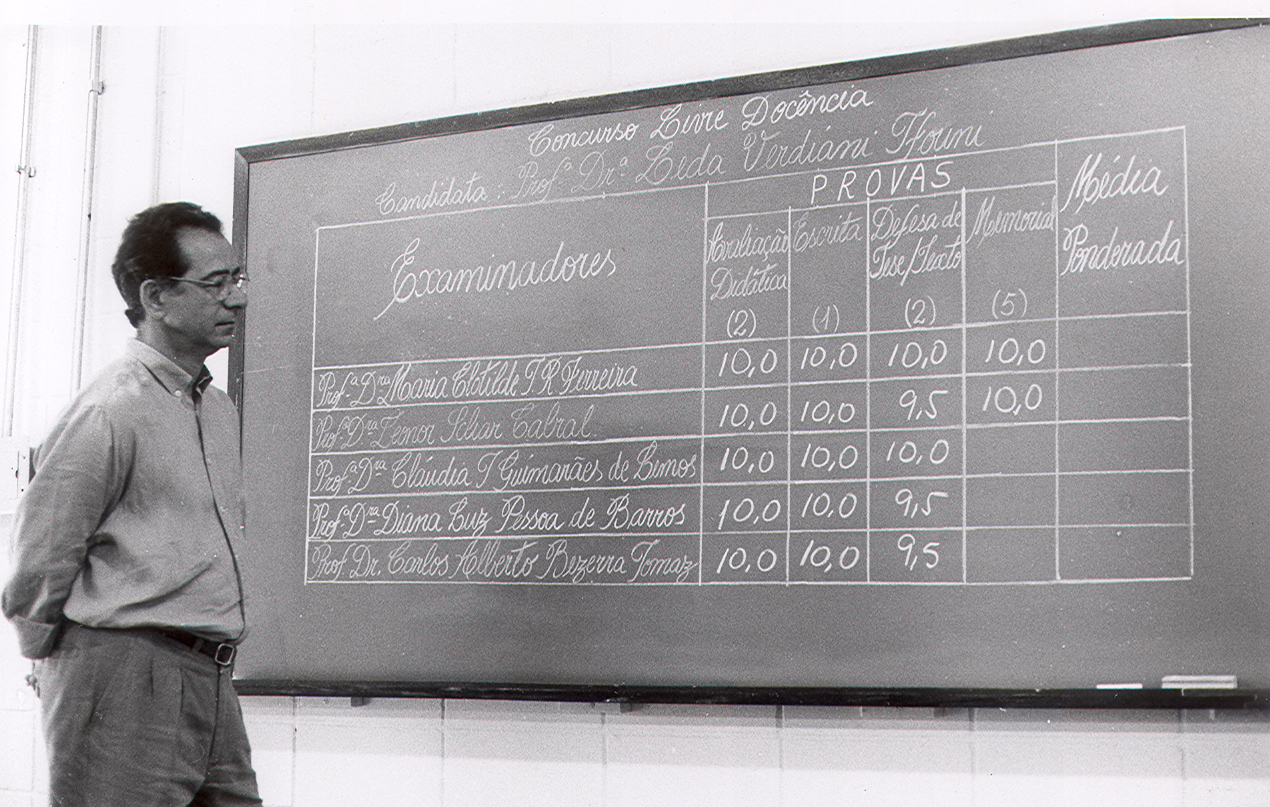 Concurso Livre Docência
Candidata: Profª Drª Leda Verdiani Tfouni
Examinadores PROVAS Média Ponderada
Avaliação Didática (2) Escrita (1) Defesa de Tese/Texto (2) Memorial (5)
Profª Dra Maria Clotilde T R Ferreira 10,0 10,0 10,0 10,0
Profª Dra Leonor Scliar Cabral 10,0 10,0 9,5 10,0
Profª Dra Cláudia T Guimarães de Lemos 10,0 10,0 10,0
Profª Dra Diana Luz Pessoa de Barros 10,0 10,0 9,5
Prof Dr. Carlos Alberto Bezerra Tomaz 10,0 10,0 9,5